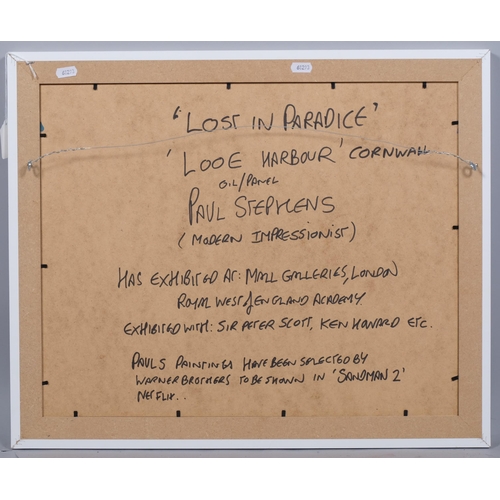 "LOST IN PARADICE"
'LOOE HARBOUR' CORNWALL
OIL/PANEL
PAUL STEPHENS
(MODERN IMPRESSIONIST)
HAS EXHIBITED AT: MALL GALLERIES, LONDON
ROYAL WEST of ENGLAND ACADEMY
EXHIBITED WITH: SIR PETER SCOTT, KEN HOWARD ETC.
PAULS PAINTINGS HAVE BEEN SELECTED BY
WARNER BROTHERS TO BE SHOWN IN 'SANDMAN 2'
NETFLIX..